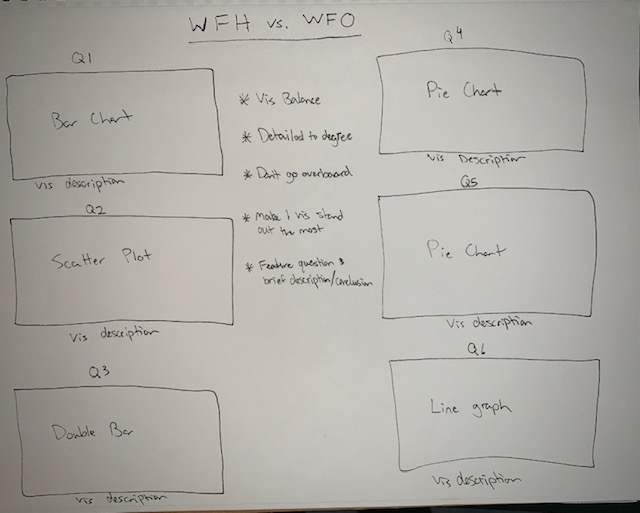 WFH vs. WFO
Q1
Bar Chart
Vis description
Q2
Scatter Plot
Vis description
Q3
Double Bar
Vis description
* Vis Balance
* Detailed to degree
* Don't go overboard
* Make 1 vis stand
out the most
* Feature question &
brief description/conclusion
Q4
Pie Chart
Vis Description
Q5
Pie Chart
Vis description
Q6
Line graph
Vis description